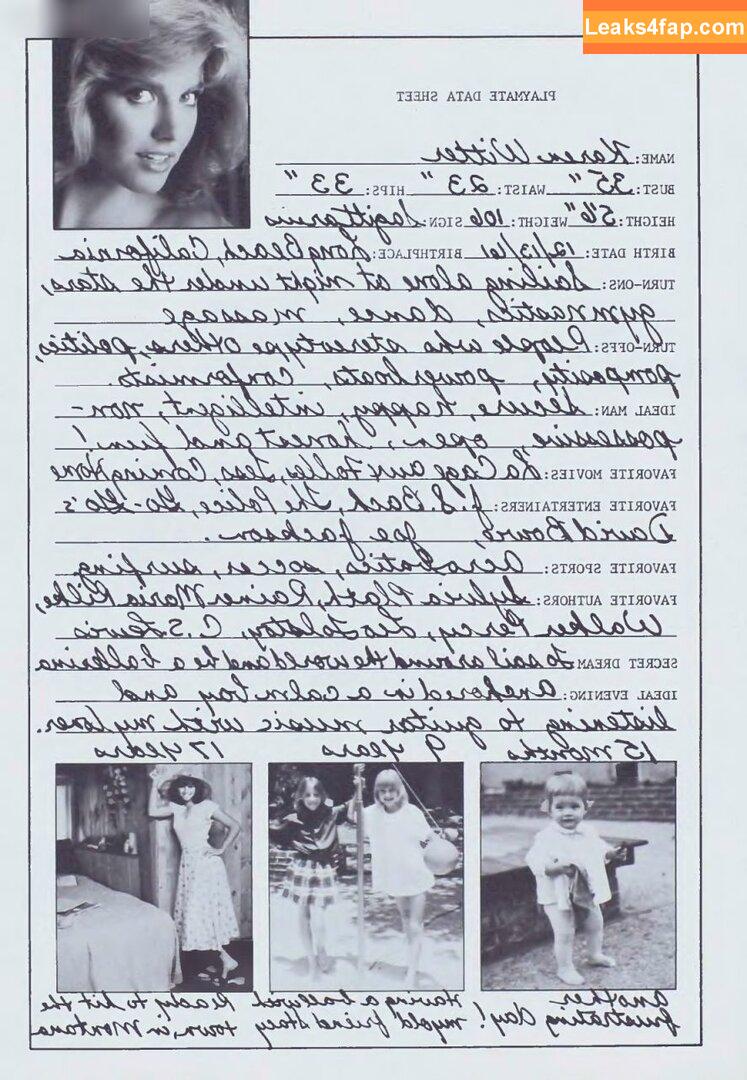 Leaks4fap.com
PLAYMATE DATA SHEET
NAME: Karen Witter
BUST: 35" WAIST: 23" HIPS: 33"
HEIGHT: 5'6" WEIGHT: 106 SIGN: Sagittarius
BIRTH DATE: 12/13/61 BIRTHPLACE: Long Beach, California
TURN-ONS: Sailing alone at night under the stars,
gymnastics, dance, massage
TURN-OFFS: People who stereotype others, politics,
pomposity, powerboats, conformists.
IDEAL MAN: Secure, happy, intelligent, non-
possessive, open, honest and fun!
FAVORITE MOVIES: La Cage aux Folles, Tess, Coming Home
FAVORITE ENTERTAINERS: J.S. Bach, The Police, Go-Go's
David Bowie, Joe Jackson.
FAVORITE SPORTS: Acrobatics, soccer, surfing
FAVORITE AUTHORS: Sylvia Plath, Rainer Maria Rilke,
Walker Percy, Leo Tolstoy, C.S. Lewis
SECRET DREAM: To sail around the world and be a ballerina
IDEAL EVENING: Anchored in a calm bay and
listening to guitar music with my lover.
15 months 9 years 17 years
Another
frustrating day!
Having a ball with
my old friend Stacy
Ready to hit the
town, in Montana